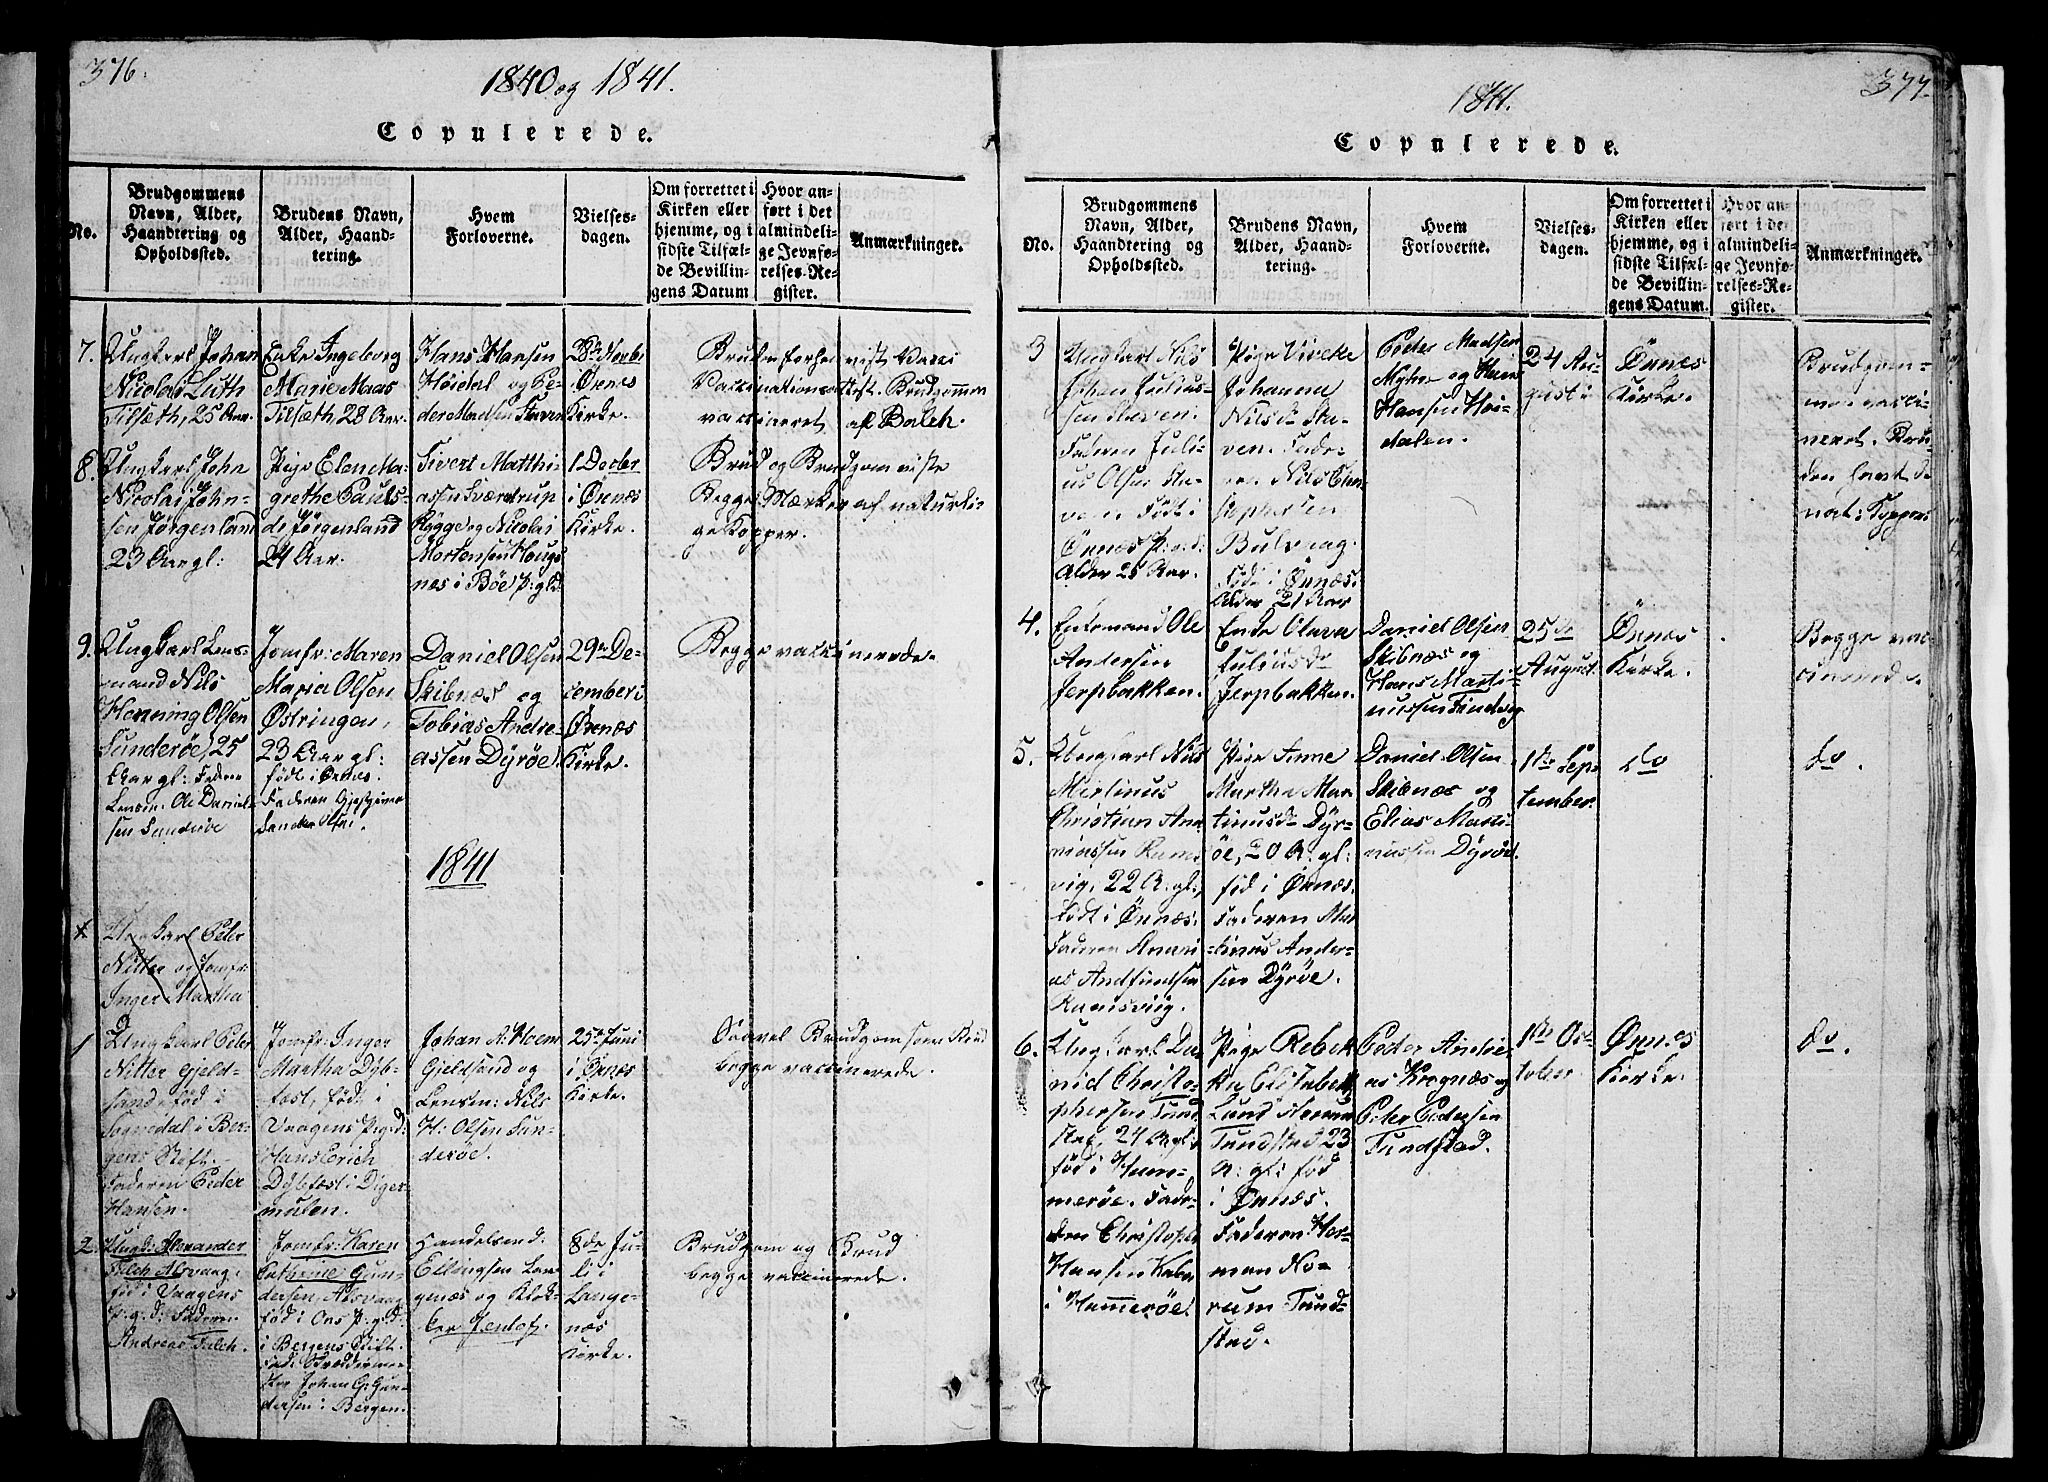 376.
1840 og 1841.
Copulerede.
No.
Brudgommens
Navn, Alder,
Haandtering og
Opholdssted.
Brudens Navn,
Alder, Haand-
tering.
Hvem
Forloverne.
Vielses-
dagen.
Om forrettet i
Kirken eller
hjemme, og i
sidste Tilfæl-
de Bevillin-
gens Datum
Hvor an-
ført i det
almindeli-
ge Jevnfø-
relses-Re-
gister.
Anmærkninger.
7.
Ungkarl Johan
Nicolai Luth
Tilsæth, 25 Aar.
Enke Ingeborg
Marie Maas
Tilsæth, 28 Aar.
Hans Hansen
Høidal og Pe-
der Madsen
28de Novbr
i Ørnes
Kirke.
Bruden forhen
Vaccinationsattest. Brudgommen
vaccineret af Balch.
8.
Ungkarl John
Nicolai John-
sen Jørgenland
23 Aar gl:
Pige Elen Ma-
grethe Pauls-
dr Jørgenland
24 Aar.
Sivert Matthi-
assen Sværdrup
Rygge og Nicolai
Mortensen Houg-
nes i Bøe P: gld
1 Decbr
i Ørnes
Kirke.
Brud og Brudgom viste
Begge Mærker af naturli-
ge Kopper.
9.
Ungkarl Lens-
mand Nils
Henning Olsen
Sunderøe, 25
Aar gl: Faderen
Lensm. Ole Daniel-
sen Sunderøe
Jomfr: Maren
Maria Olsen
Østringen,
23 Aar gl:
født i Ørnes.
Faderen Gjestgiver
Olsen.
Daniel Olsen
Skibnæs og
Tobias Andre-
assen Dyrøe
29de De-
cember i
Ørnæs
Kirke.
Begge vaccinerede.
1841
Ungkarl Peter
Nitter og Jomfr:
Inger Martha
1
Ungkarl Peter
Nitter Gjeld-
sand, fød i
Sogndal i Ber-
gens Stift.
Faderen Peder
Hansen.
Jomfr: Inger
Martha Dyb-
fest, fød i
Vaagens Pr:gd:
Hans Erich
Dybfest i Diger-
mulen.
Johan A: Hoem
Gjeldsand og
Lensm: Nils
H: Olsen Sun-
derøe.
25de Juni
i Ørnes
Kirke.
Saavel Brudgom som Brud
begge vaccinerede.
2.
Ungk: Alexander
Falch Alsvaag,
fød i Vaagens
P.g.d: Faderen
Andreas Falch.
Jomfr: Karen
Cathrine Gun-
dersen Alsvaag
fød i Ous P.gd:
i Bergens Stift.
Johan G: Gun-
dersen i Bergen.
Handelsmd:
Ellingsen Lan-
genæs og Klok-
ker Jentoft.
8de Ju-
li i
Lange-
næs
Kirke.
Brudgom og Brud
begge vaccinerede.
377.
1841.
Copulerede.
No.
Brudgommens
Navn, Alder,
Haandtering og
Opholdssted.
Brudens Navn,
Alder, Haand-
tering.
Hvem
Forloverne.
Vielses-
dagen.
Om forrettet i
Kirken eller
hjemme, og i
sidste Tilfæl-
de Bevillin-
gens Datum.
Hvor an-
ført i det
almindeli-
ge Jevnfø-
relses-Re-
gister.
Anmærkninger.
3
Ungkarl Nils
Johan Julius-
sen Staven.
Faderen Juli-
us Olsen Sta-
ven. Født i
Ørnæs P:gd:
Alder 25 Aar.
Pige Viveke
Johanna
Nilsdr Sta-
ven. Fade-
ren Nils Chri-
stophersen
Bulvaag.
Fød i Ørnæs.
Alder 21 Aar
Peder Madsen
Myhre og Hans
Hansen Høi-
dalen.
24 Au-
gust i
Ørnæs
Kirke.
Brudgom-
men vacci-
neret. Bru-
den havt
nat: Kopper
4.
Enkemand Ole
Andersen
Jerpbakken.
Enke Olava
Juliusdr
Jerpbakken.
Daniel Olsen
Skibnæs og
Hans Marti-
nussen
25de
August
Ørnes
Kirke.
Begge vac-
cinerede.
5.
Ungkarl Nils
Martinus
Christian Ana-
niassen Rams-
vig, 22 A: gl:
født i Ørnæs.
Faderen Anani-
as Andfindsen
Ramsviig.
Pige Anne
Martha Mar-
tinusdr Dyr-
øe, 20 A: gl:
fød i Ørnæs.
Faderen Mar-
tinus Ander-
sen Dyrøe.
Daniel Olsen
Skibnæs og
Elias Marti-
nussen Dyrøe.
1ste Sep-
tember.
do
do.
6.
Ungkarl Da-
nid Christo-
phersen Tund-
stad, 24 A gl:
fød i Ham-
merøe. Fade-
ren Christoph:
Hansen
i Hammerøe.
Pige Rebek-
ka Elisabeth
Lund Herman
Tundstad 23
A: gl: fød
i Ørnæs.
Faderen Her-
man No-
rum Tund-
stad.
Peder Andre-
as Krognæs og
Peter Pedersen
Tundstad.
1ste Oc-
tober
Ørnes
Kirke.
do.